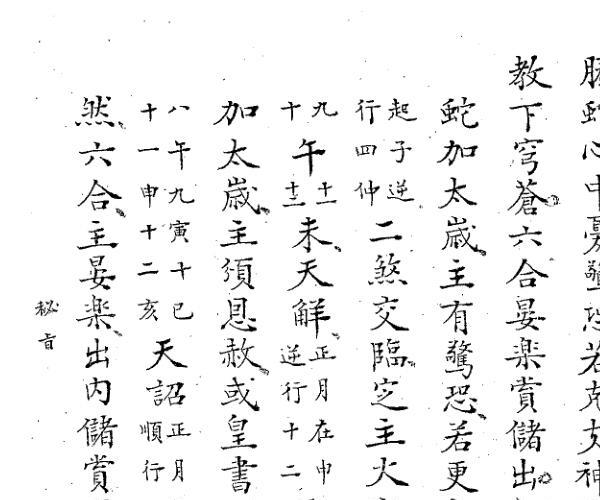 蛇心中憂驚恐若克神
教下穹蒼六合晏楽賞儲出
蛇加太歳主有驚恐若更
起子逆
行四仲
二煞交臨定主火
九
十
午
十一
十二
未天解
正月在申
逆行十二
加太歳主須恩赦或皇書
八午九寅十巳
十一申十二亥
天詔
正月
順行
然六合主晏楽出内儲賞
秘旨